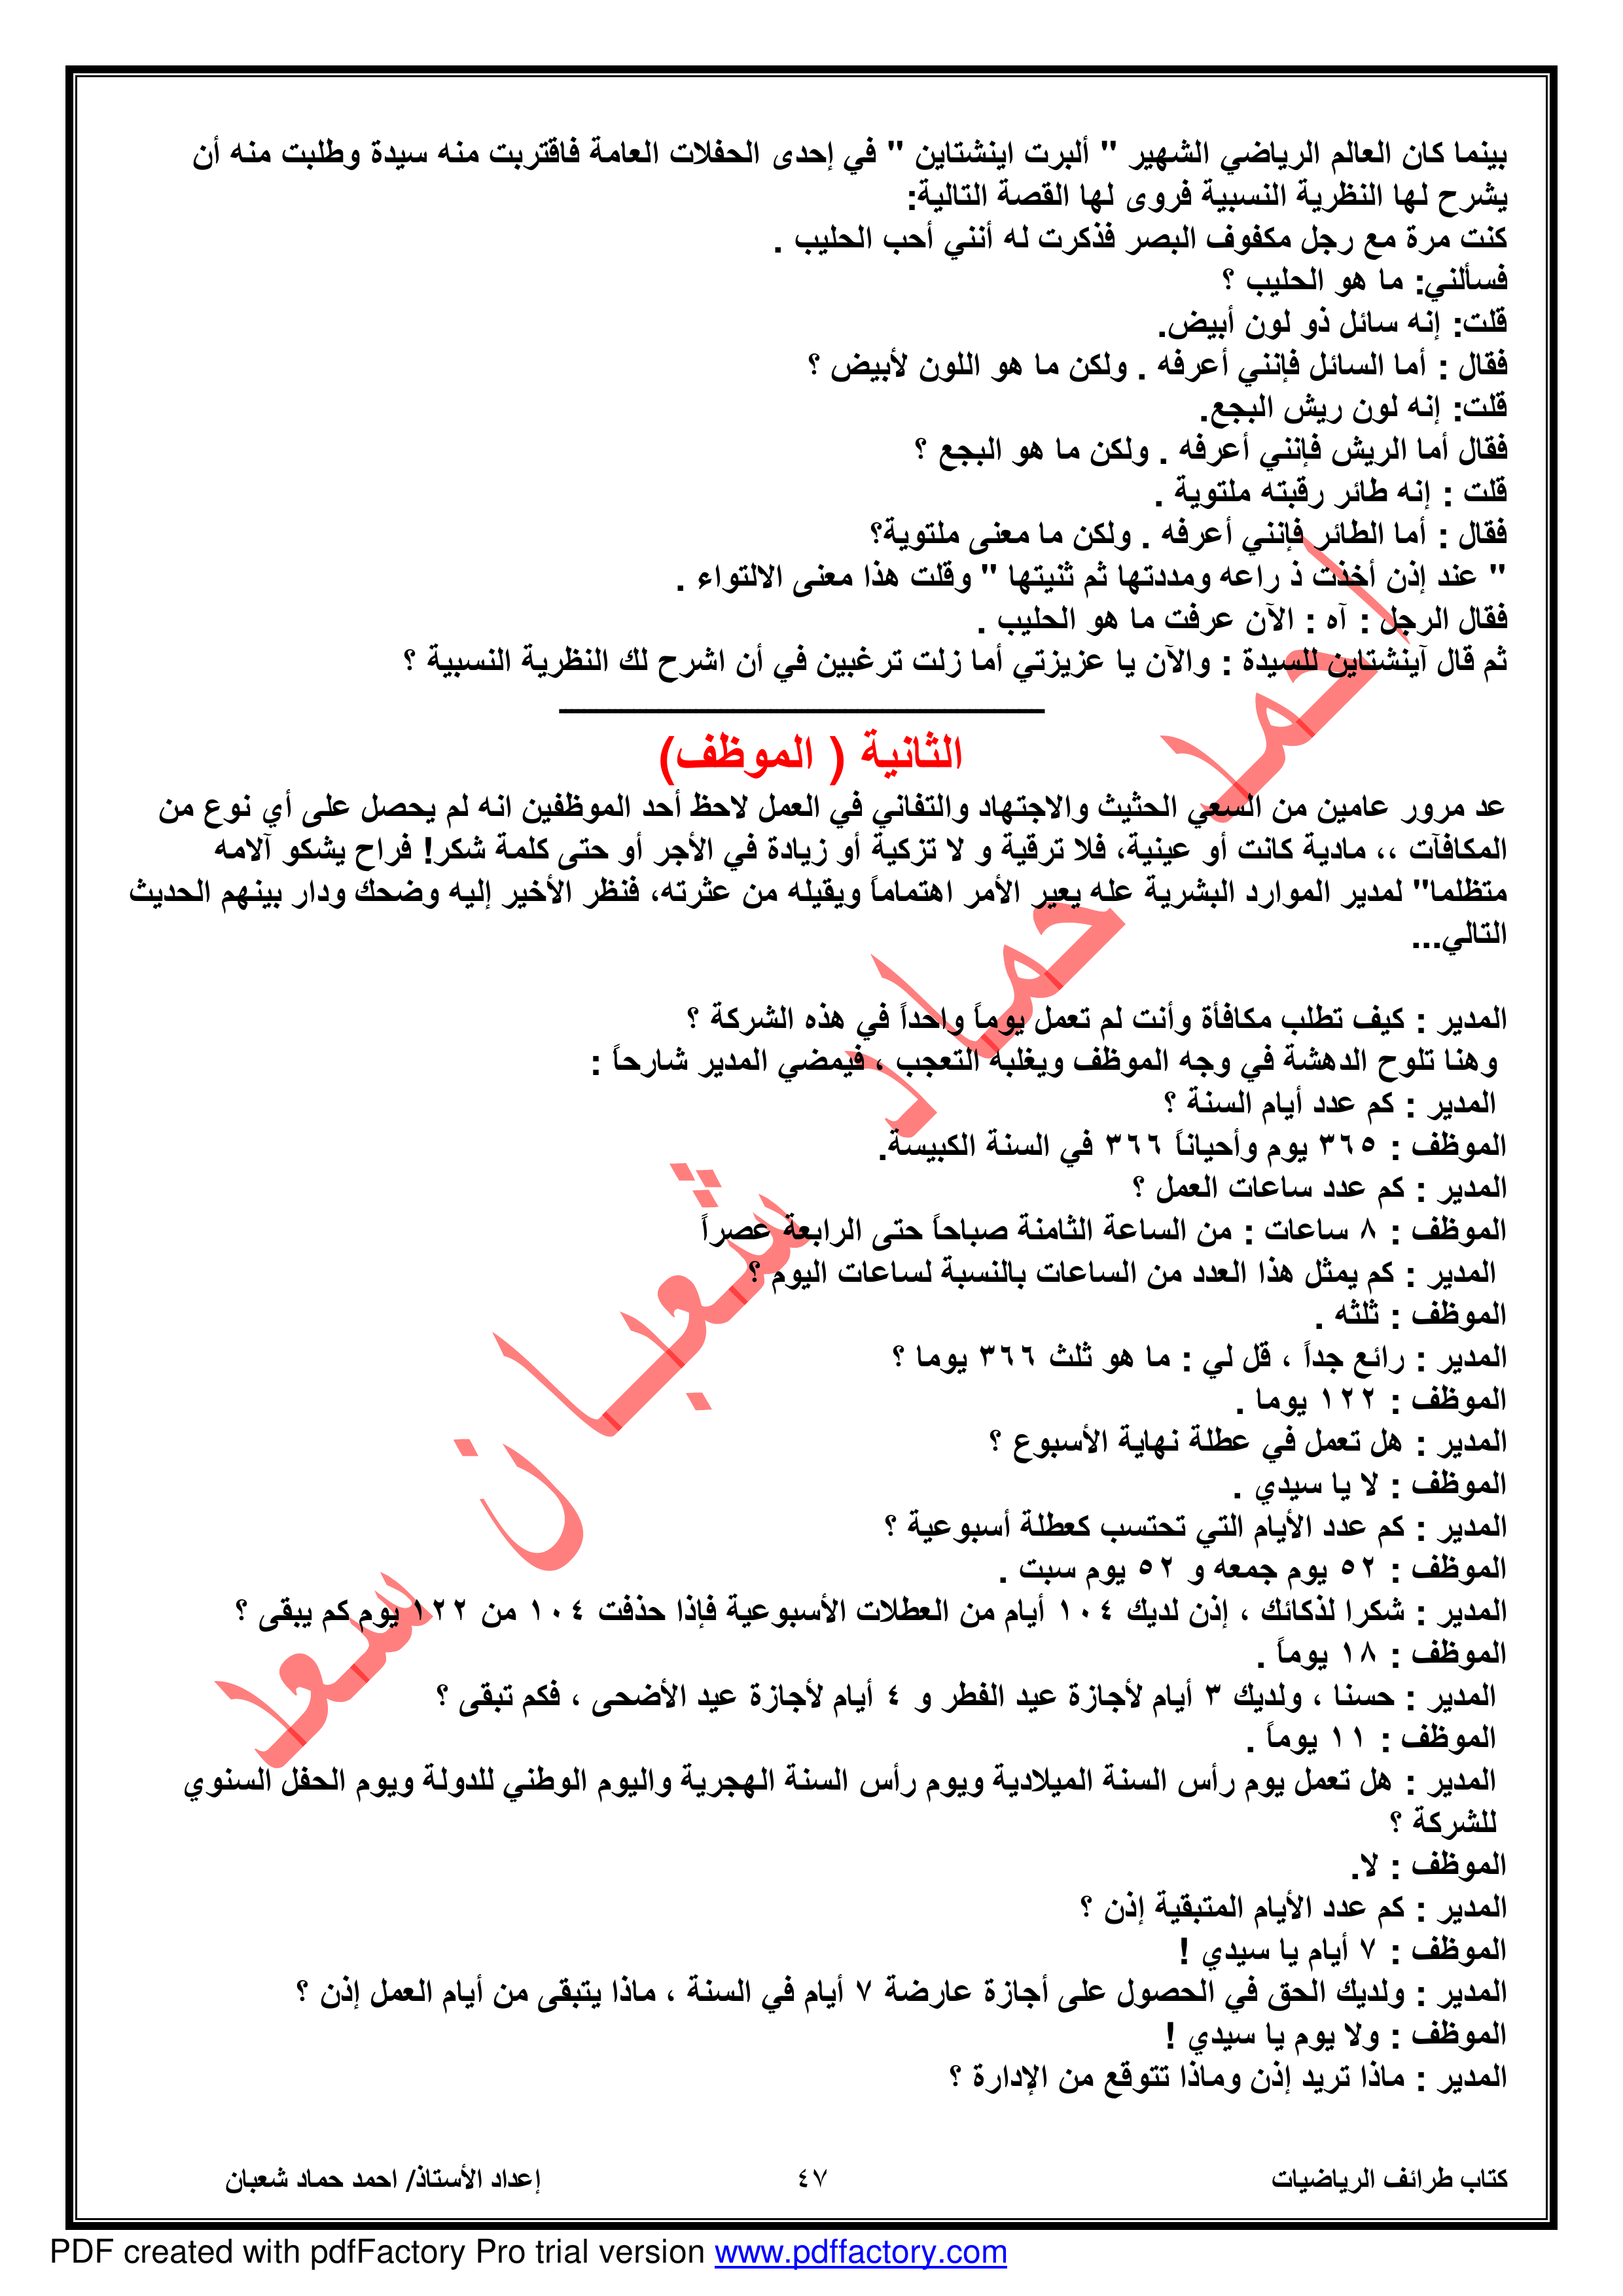 بينما كان العالم الرياضي الشهير " ألبرت اينشتاين " في إحدى الحفلات العامة فاقتربت منه سيدة وطلبت منه أن
يشرح لها النظرية النسبية فروى لها القصة التالية:
كنت مرة مع رجل مكفوف البصر فذكرت له أنني أحب الحليب .
فسألني: ما هو الحليب ؟
قلت: إنه سائل ذو لون أبيض.
فقال : أما السائل فإنني أعرفه . ولكن ما هو اللون لأبيض ؟
قلت: إنه لون ريش البجع.
فقال أما الريش فإنني أعرفه . ولكن ما هو البجع ؟
قلت : إنه طائر رقبته ملتوية .
فقال : أما الطائر فإنني أعرفه . ولكن ما معنى ملتوية؟
" عند إذن أخذت ذ راعه ومددتها ثم ثنيتها " وقلت هذا معنى الالتواء .
فقال الرجل : آه : الآن عرفت ما هو الحليب .
ثم قال آينشتاين للسيدة : والآن يا عزيزتي أما زلت ترغبين في أن اشرح لك النظرية النسبية ؟
الثانية ( الموظف)
عد مرور عامين من السعي الحثيث والاجتهاد والتفاني في العمل لاحظ أحد الموظفين انه لم يحصل على أي نوع من
المكافآت ،، مادية كانت أو عينية، فلا ترقية و لا تزكية أو زيادة في الأجر أو حتى كلمة شكر! فراح يشكو آلامه
متظلما" لمدير الموارد البشرية عله يعير الأمر اهتماماً ويقيله من عثرته، فنظر الأخير إليه وضحك ودار بينهم الحديث
التالي...
المدير : كيف تطلب مكافأة وأنت لم تعمل يوماً واحداً في هذه الشركة ؟
وهنا تلوح الدهشة في وجه الموظف ويغلبه التعجب ، فيمضي المدير شارحاً :
المدير : كم عدد أيام السنة ؟
الموظف : ٣٦٥ يوم وأحياناً ٣٦٦ في السنة الكبيسة.
المدير : كم عدد ساعات العمل ؟
الموظف : ٨ ساعات : من الساعة الثامنة صباحاً حتى الرابعة عصراً
المدير : كم يمثل هذا العدد من الساعات بالنسبة لساعات اليوم ؟
الموظف : ثلثه .
المدير : رائع جداً ، قل لي : ما هو ثلث ٣٦٦ يوما ؟
الموظف : ١٢٢ يوما .
المدير : هل تعمل في عطلة نهاية الأسبوع ؟
الموظف : لا يا سيدي .
المدير : كم عدد الأيام التي تحتسب كعطلة أسبوعية ؟
الموظف : ٥٢ يوم جمعه و ٥٢ يوم سبت .
المدير : شكرا لذكائك ، إذن لديك ١٠٤ أيام من العطلات الأسبوعية فإذا حذفت ١٠٤ من ١٢٢ يوم كم يبقى ؟
الموظف : ١٨ يوماً .
المدير : حسنا ، ولديك ٣ أيام لأجازة عيد الفطر و ٤ أيام لأجازة عيد الأضحى ، فكم تبقى ؟
الموظف : ١١ يوماً .
المدير : هل تعمل يوم رأس السنة الميلادية ويوم رأس السنة الهجرية واليوم الوطني للدولة ويوم الحفل السنوي
للشركة ؟
الموظف : لا.
المدير : كم عدد الأيام المتبقية إذن ؟
الموظف : ٧ أيام يا سيدي !
المدير : ولديك الحق في الحصول على أجازة عارضة ٧ أيام في السنة ، ماذا يتبقى من أيام العمل إذن ؟
الموظف : ولا يوم يا سيدي !
المدير : ماذا تريد إذن وماذا تتوقع من الإدارة ؟
احمد حماد شعبان سعد
كتاب طرائف الرياضيات ٤٧ إعداد الأستاذ/ احمد حماد شعبان
PDF created with pdfFactory Pro trial version www.pdffactory.com